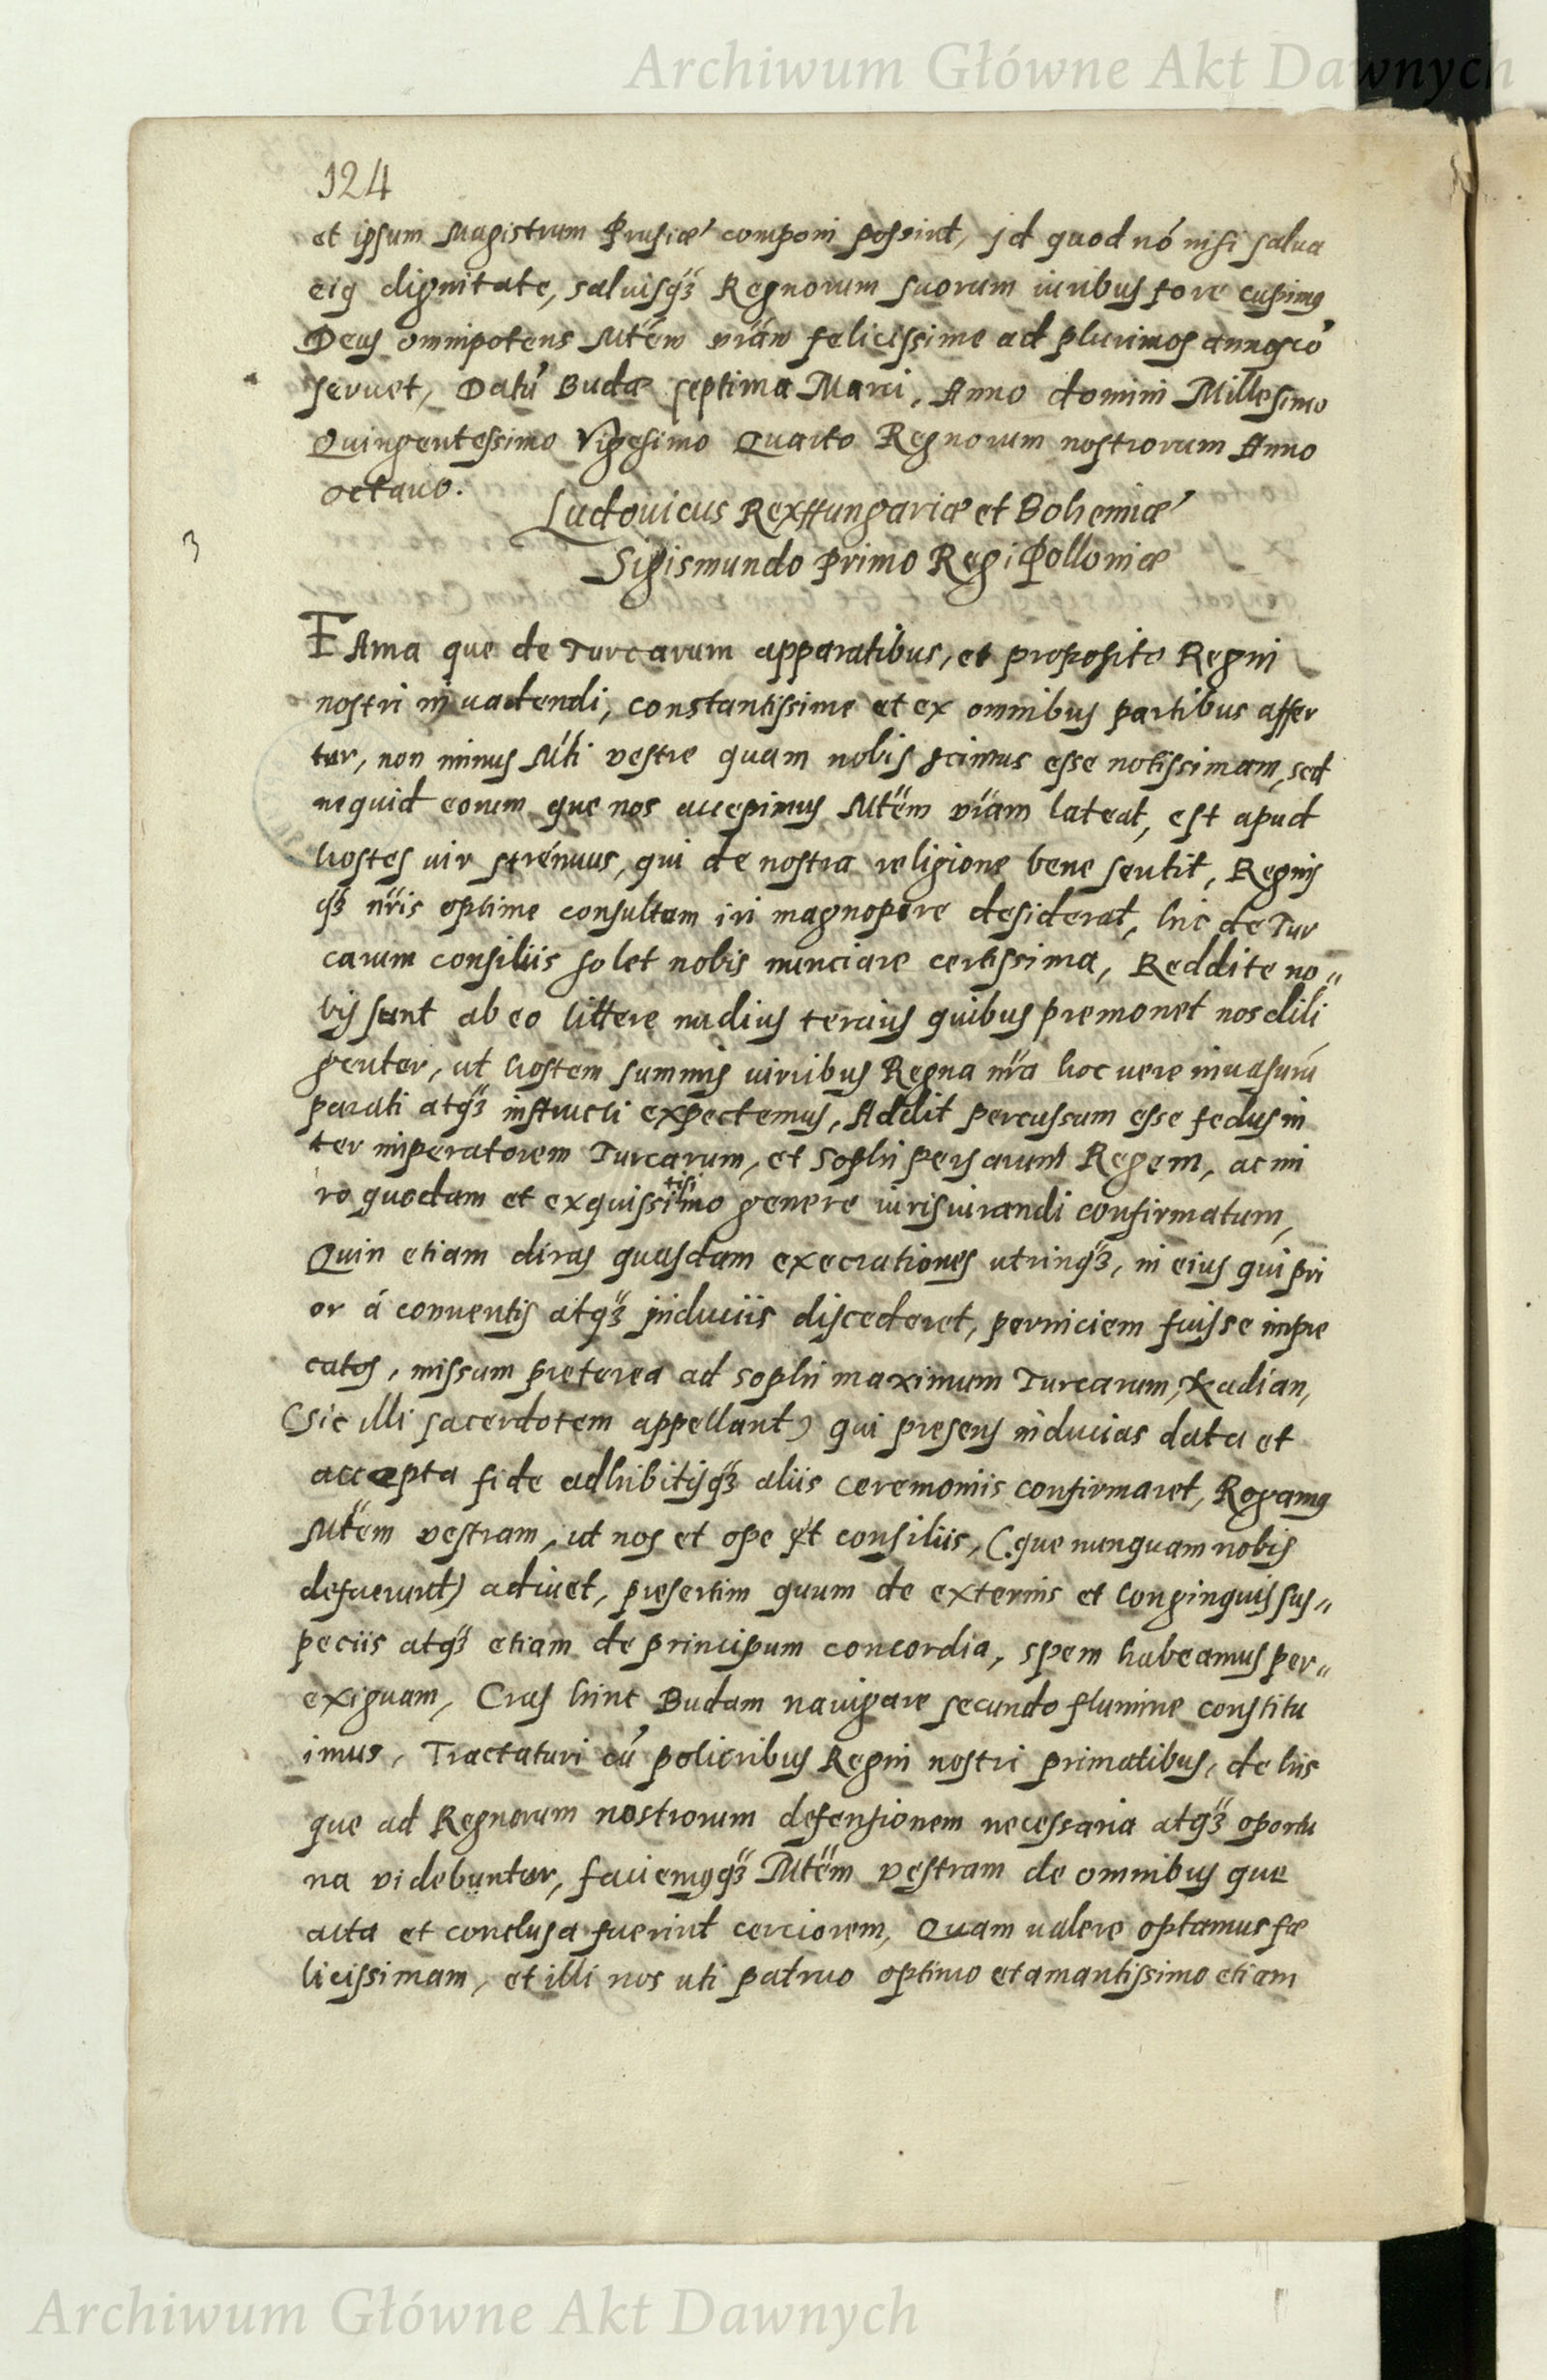 Archiwum Główne Akt Dawnych
124
et ipsum Magistrum Prusiæ componi possint, jd quod nó nisi salua
eiꝯ dignitate, saluisq́ꝫ Regnorum suorum iuribus fore cupimꝯ
Deus omnipotens Mtém vrám felicissime ad plurimos annos có
seruet, Datú Budæ septima Marci, Anno domini Millesimo
Quingentessimo Vigesimo Quarto Regnorum nostrorum Anno
octauo.
Ludouicus Rex Hungariæ et Bohemiæ
3
Sigismundo Primo Regi Polloniæ
FAma que de Turcarum apparatibus, et proposito Regni
nostri inuadendi, constantissime et ex omnibus partibus affer
tur, non minus Mti vestre quam nobis scimus esse notissimam, sed
nequid eorum que nos accepimus Mtem vram lateat, est apud
hostes uir strénuus, qui de nostra religione bene sentit, Regnis
q́ꝫ nris optime consultum iri magnopere desiderat, hic de Tur
carum consiliis solet nobis nunciare certissima, Reddite no„
bis sunt ab eo littere nudius tercius quibus premonet nos dili
genter, ut hostem summis uiribus Regna nra hoc uere inuasurú
parati atq́ꝫ instructi expectemus, Addit percussum esse fedus in
ter imperatorem Turcarum, et Sophi persarum Regem, ac mi
ro quodam et exquissitissimo genere iurisiurandi confirmatum,
Quin etiam diras quasdam execrationes utrinq́ꝫ, in eius qui pri
or á conuentis atq́ꝫ induciis discederet, perniciem fuisse impre
catos, missum preterea ad sophi maximum Turcarum, Kadian,
(sic illi sacerdotem appellant) qui presens inducias data et
accepta fide adhibitisq́ꝫ aliis ceremoniis confirmaret, Rogamꝯ
Mtem vestram, ut nos et ope et consiliis, (que nunquam nobis
defuerunt) adiuet, presertim quum de externis et longinquis sus„
peciis atq́ꝫ etiam de principum concordia, spem habeamus per„
exiguam, Cras hinc Budam nauigare secundo flumine constitu
imus, Tractaturi cú policribus Regni nostri primatibus, de his
que ad Regnorum nostrorum defensionem necessaria atq́ꝫ oportu
na videbuntur, faciemꝯq́ꝫ Mtem vestram de omnibus que
acta et conclusa fuerint cerciorem, Quam ualere optamus fæ
licissimam, et illi nos uti patruo optimo et amantissimo etiam
Archiwum Główne Akt Dawnych